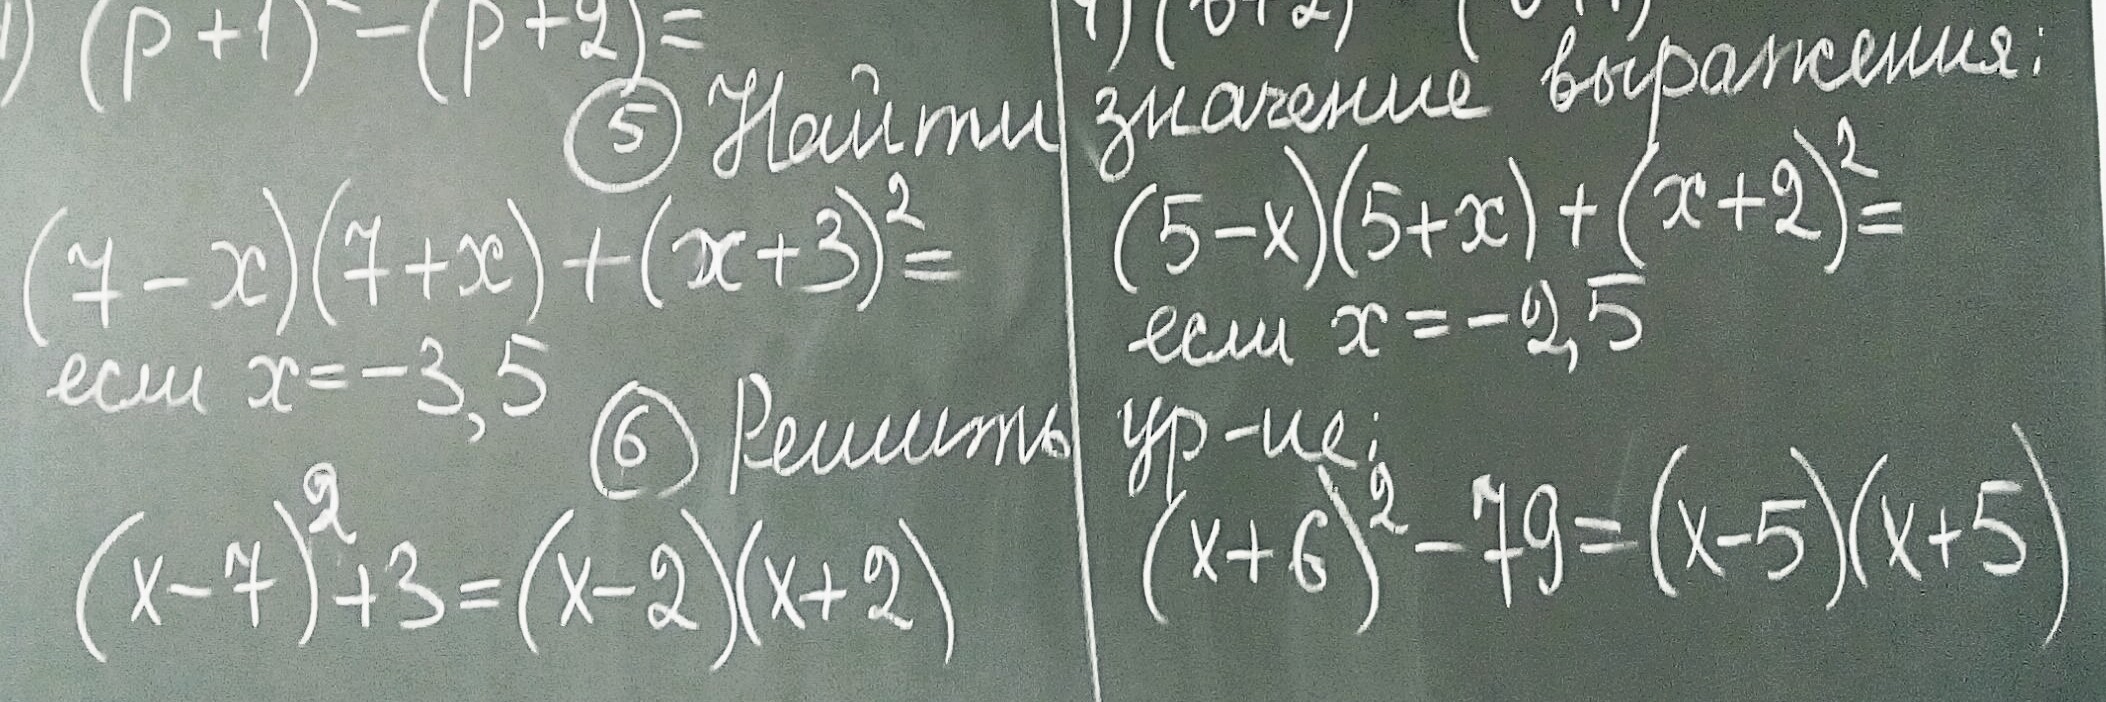 1) (p+1)² - (p+2) =
⑤ Найти значение выражения:
(7-x)(7+x)+(x+3)²=
если x=-3,5
(5-x)(5+x)+(x+2)²=
если x=-2,5
⑥ Решить ур-ие:
(x-7)²+3=(x-2)(x+2)
(x+6)²-79=(x-5)(x+5)